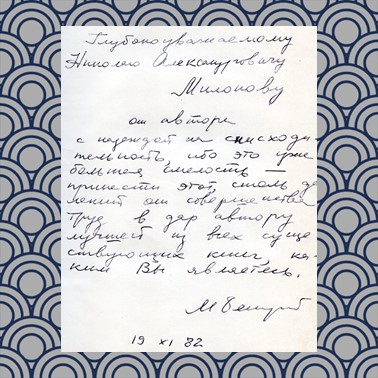 Глубокоуважаемому
Николаю Александровичу
Милонову
от автора
с надеждой на снисходи
тельность, ибо это уже
большая смелость —
принести этот, столь да
лекий от совершенства
труд в дар автору
лучшей из всех суще
ствующих книг, ка-
ким Вы являетесь.
М
19 XI 82